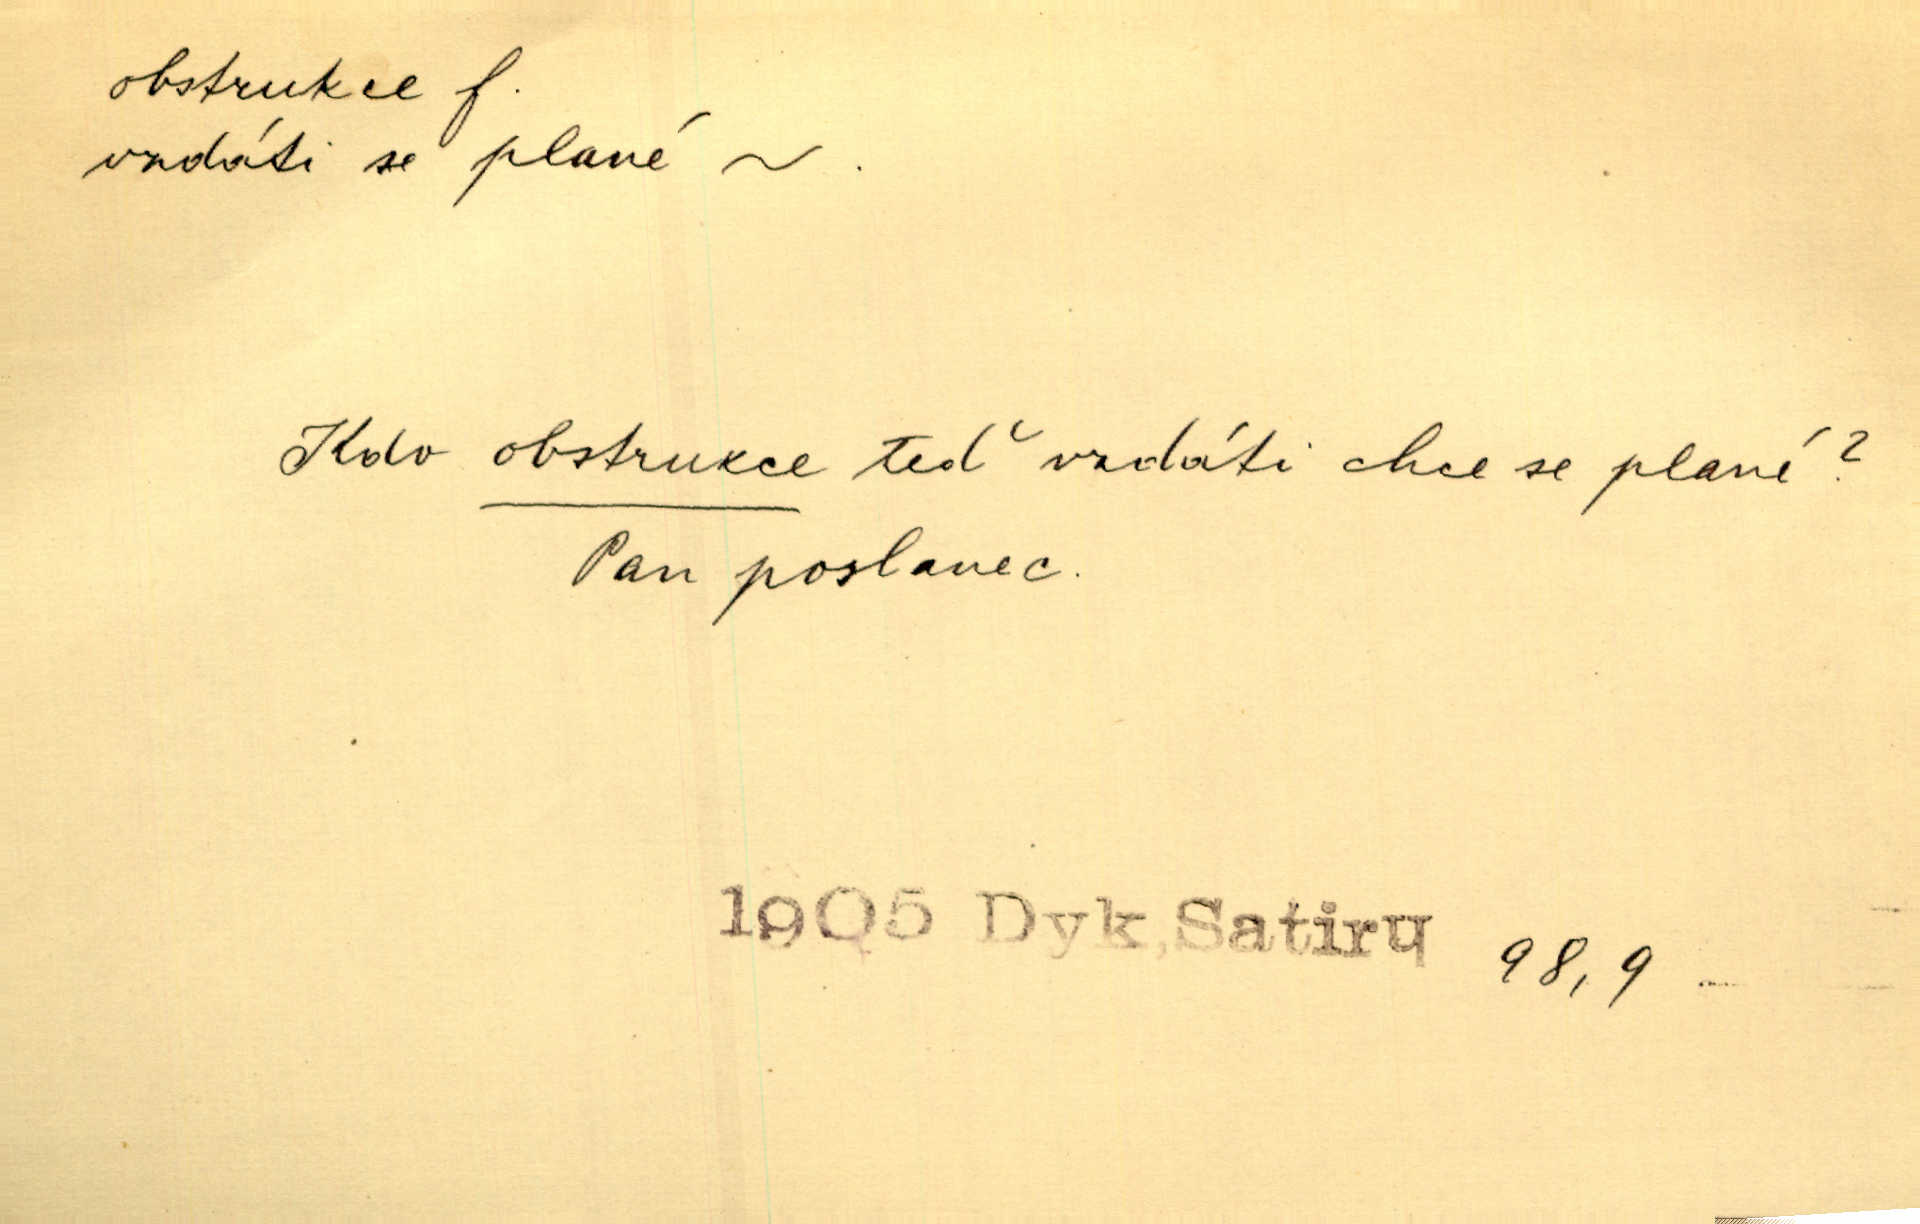 obstrukce f.
vzdáti se plané ~.
Kdo obstrukce teď vzdáti chce se plané?
Pan poslanec.
1905 Dyk,Satiry 98,9